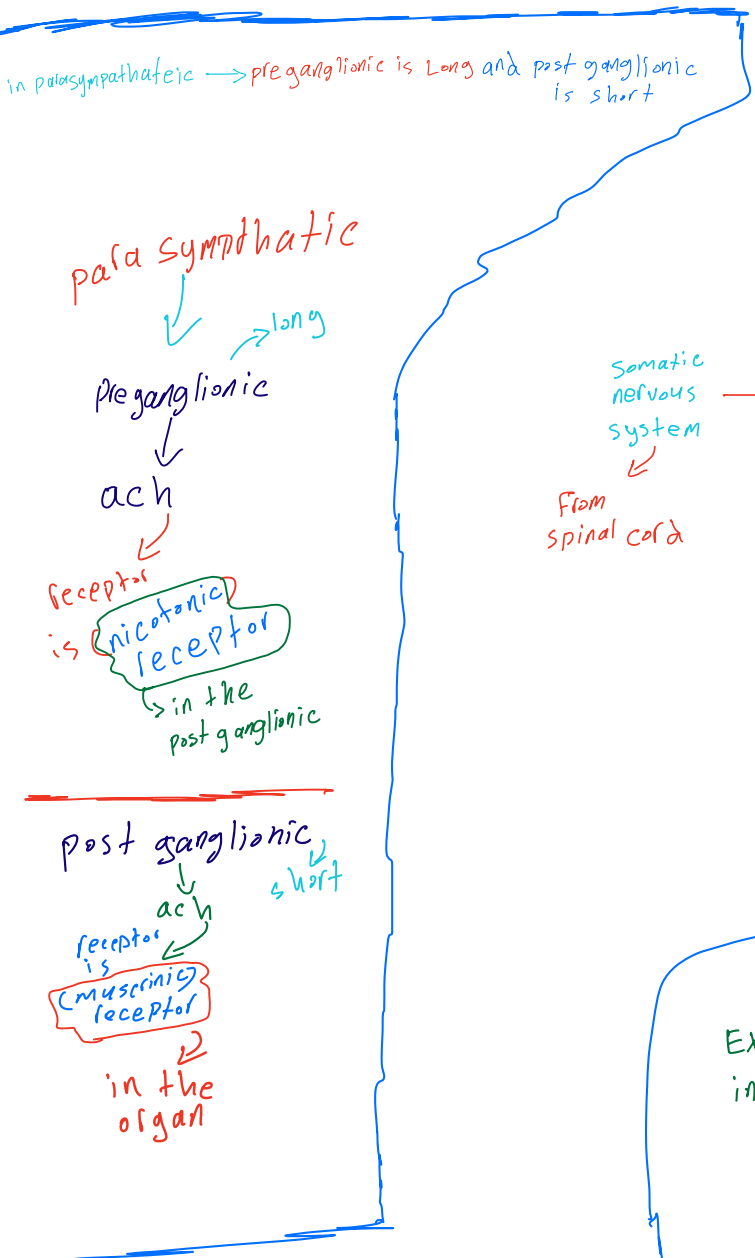 in parasympathateic → preganglionic is Long and post ganglionic
is short
para sympthatic
long
Preganglionic
ach
receptor
is (nicotonic)
receptor
in the
post ganglionic
post ganglionic
short
ach
receptor
is
(muscrinic)
receptor
in the
organ
Somatic
nervous
system
From
spinal cord
Ex
in